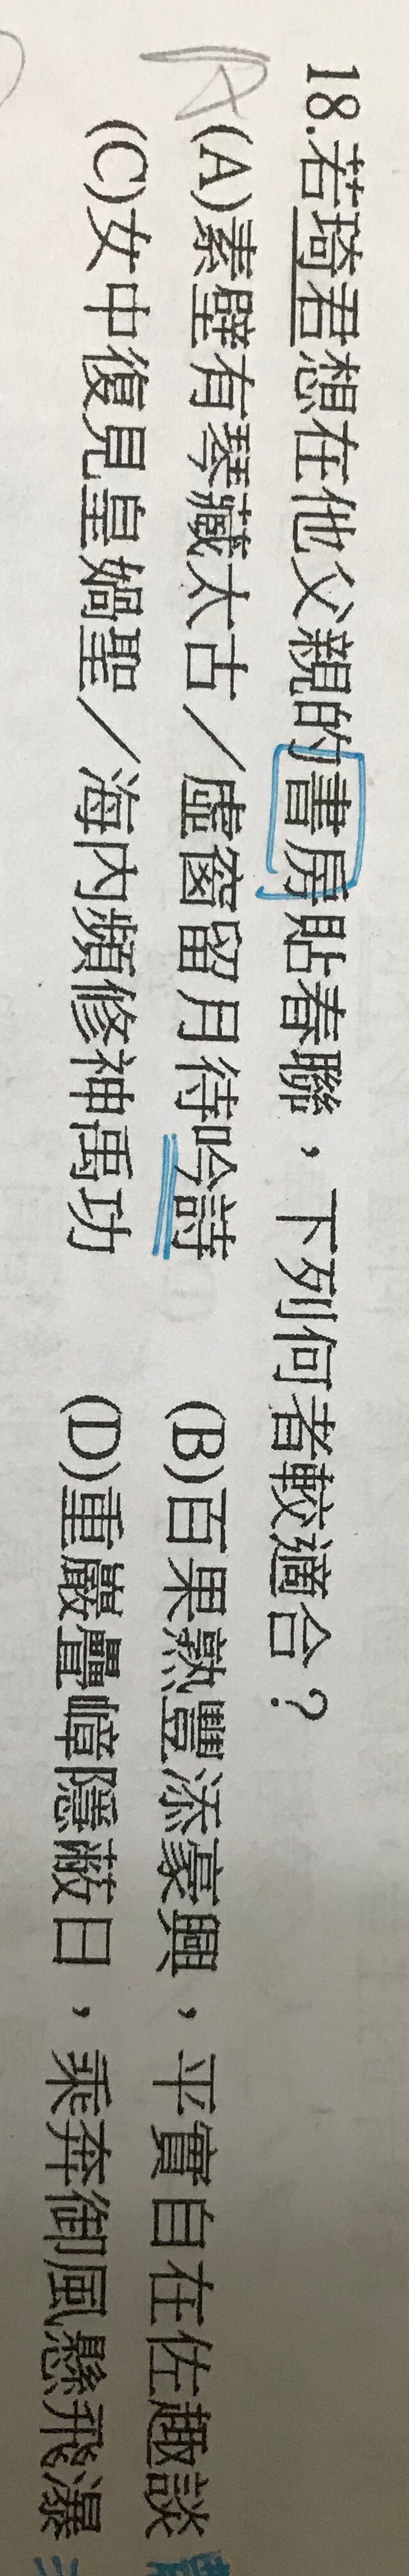 18.若琦君想在他父親的書房貼春聯，下列何者較適合？
(A)素壁有琴藏太古／虛窗留月待吟詩　(B)百果熟豐添豪興，平實自在佐趣談
(C)女中復見皇媧聖／海內頻修神禹功　(D)重巖疊嶂隱蔽日，乘奔御風懸飛瀑